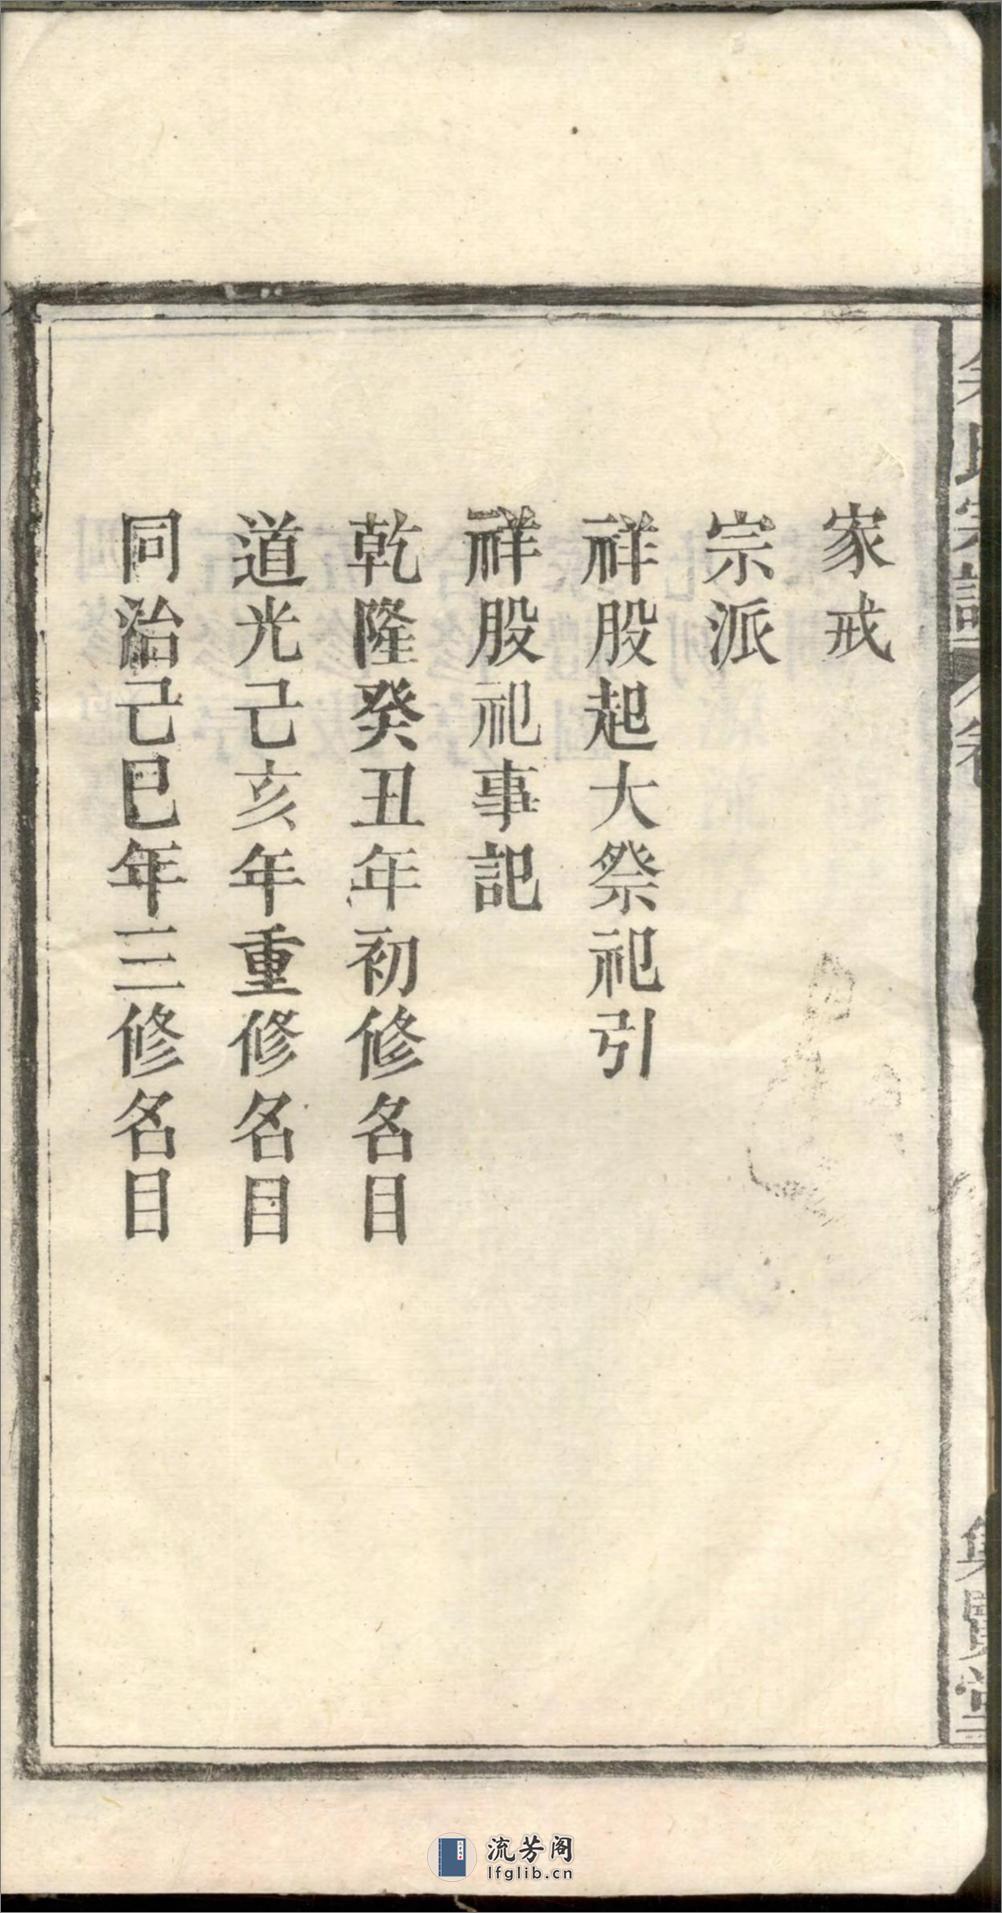 家戒
宗派
祥股起大祭祀引
祥股祀事記
乾隆癸丑年初修名目
道光己亥年重修名目
同治己巳年三修名目
流芳阁
lfglib.cn